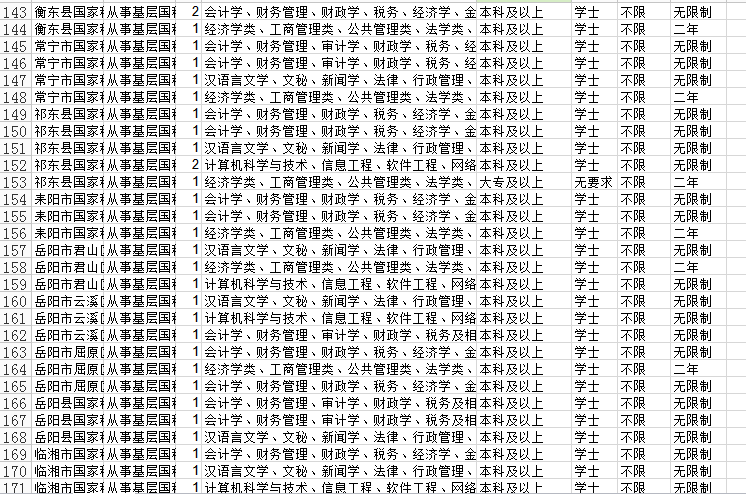 143 衡东县国家 从事基层国 2 会计学、财务管理、财政学、税务、经济学、金 本科及以上 学士 不限 无限制
144 衡东县国家 从事基层国 1 经济学类、工商管理类、公共管理类、法学类、 本科及以上 学士 不限 二年
145 常宁市国家 从事基层国 1 会计学、财务管理、审计学、财政学、税务、经 本科及以上 学士 不限 无限制
146 常宁市国家 从事基层国 1 会计学、财务管理、审计学、财政学、税务、经 本科及以上 学士 不限 无限制
147 常宁市国家 从事基层国 1 汉语言文学、文秘、新闻学、法律、行政管理、 本科及以上 学士 不限 无限制
148 常宁市国家 从事基层国 1 经济学类、工商管理类、公共管理类、法学类、 本科及以上 学士 不限 二年
149 祁东县国家 从事基层国 1 会计学、财务管理、财政学、税务、经济学、金 本科及以上 学士 不限 无限制
150 祁东县国家 从事基层国 1 会计学、财务管理、财政学、税务、经济学、金 本科及以上 学士 不限 无限制
151 祁东县国家 从事基层国 1 汉语言文学、文秘、新闻学、法律、行政管理、 本科及以上 学士 不限 无限制
152 祁东县国家 从事基层国 2 计算机科学与技术、信息工程、软件工程、网络 本科及以上 学士 不限 无限制
153 祁东县国家 从事基层国 1 经济学类、工商管理类、公共管理类、法学类、 大专及以上 无要求 不限 二年
154 耒阳市国家 从事基层国 1 会计学、财务管理、财政学、税务、经济学、金 本科及以上 学士 不限 无限制
155 耒阳市国家 从事基层国 1 会计学、财务管理、财政学、税务、经济学、金 本科及以上 学士 不限 无限制
156 耒阳市国家 从事基层国 1 经济学类、工商管理类、公共管理类、法学类、 本科及以上 学士 不限 二年
157 岳阳市君山 从事基层国 1 汉语言文学、文秘、新闻学、法律、行政管理、 本科及以上 学士 不限 无限制
158 岳阳市君山 从事基层国 1 经济学类、工商管理类、公共管理类、法学类、 本科及以上 学士 不限 二年
159 岳阳市君山 从事基层国 1 计算机科学与技术、信息工程、软件工程、网络 本科及以上 学士 不限 无限制
160 岳阳市云溪 从事基层国 1 汉语言文学、文秘、新闻学、法律、行政管理、 本科及以上 学士 不限 无限制
161 岳阳市云溪 从事基层国 1 计算机科学与技术、信息工程、软件工程、网络 本科及以上 学士 不限 无限制
162 岳阳市云溪 从事基层国 1 会计学、财务管理、审计学、财政学、税务及相 本科及以上 学士 不限 无限制
163 岳阳市屈原 从事基层国 1 会计学、财务管理、财政学、税务、经济学、金 本科及以上 学士 不限 无限制
164 岳阳市屈原 从事基层国 1 经济学类、工商管理类、公共管理类、法学类、 本科及以上 学士 不限 二年
165 岳阳市屈原 从事基层国 1 会计学、财务管理、财政学、税务、经济学、金 本科及以上 学士 不限 无限制
166 岳阳县国家 从事基层国 1 会计学、财务管理、审计学、财政学、税务及相 本科及以上 学士 不限 无限制
167 岳阳县国家 从事基层国 1 会计学、财务管理、审计学、财政学、税务及相 本科及以上 学士 不限 无限制
168 岳阳县国家 从事基层国 1 汉语言文学、文秘、新闻学、法律、行政管理、 本科及以上 学士 不限 无限制
169 临湘市国家 从事基层国 1 会计学、财务管理、财政学、税务、经济学、金 本科及以上 学士 不限 无限制
170 临湘市国家 从事基层国 1 汉语言文学、文秘、新闻学、法律、行政管理、 本科及以上 学士 不限 无限制
171 临湘市国家 从事基层国 1 计算机科学与技术、信息工程、软件工程、网络 本科及以上 学士 不限 无限制